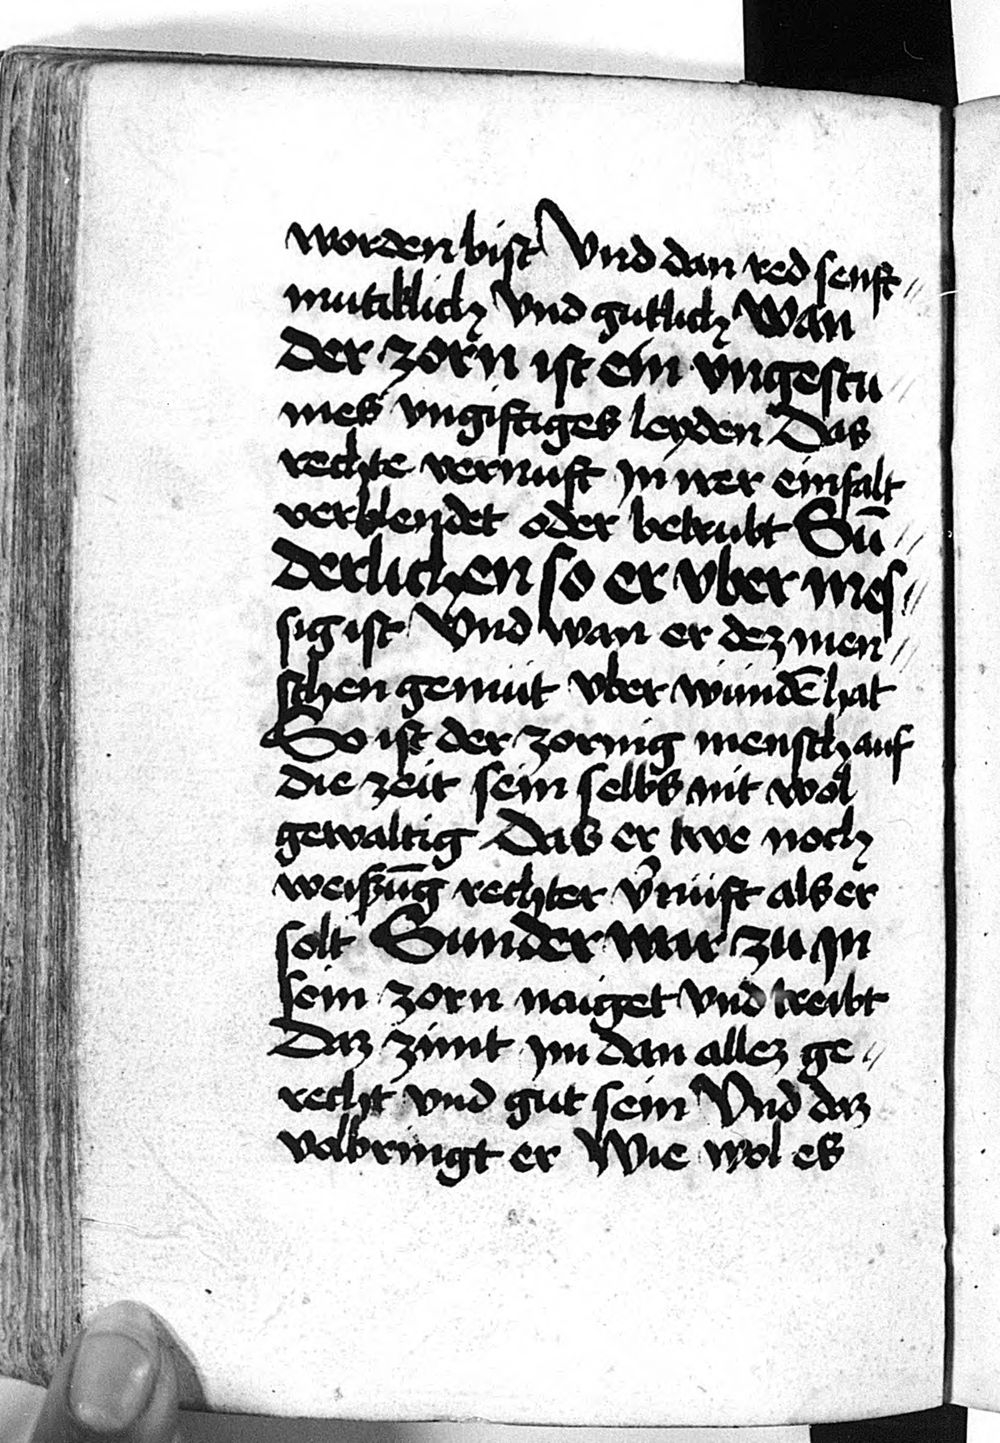 worden bist Vnd dan red senft〃
mutiklich Vnd gutlich Wan
der zorn ist ein vngestu〃
mes vngiftiges leyden Das
rechte vernuft jn irer einfalt
verblendet oder betrubt Sū〃
derlichen so er vber mes〃
sig ist Vnd wan er dez men〃
schen gemüt vber wündē hat
So ist der zornig mensch auf
die zeit sein selbs nit wol
gewaltig Das er twe noch
weißūg rechter v̄nüft als er
solt Sunder war zu jn
sein zorn naiget vnd treibt
Daz zimt jm dan allez ge〃
recht vnd gut sein Vnd daz
volbringt er Wie wol es